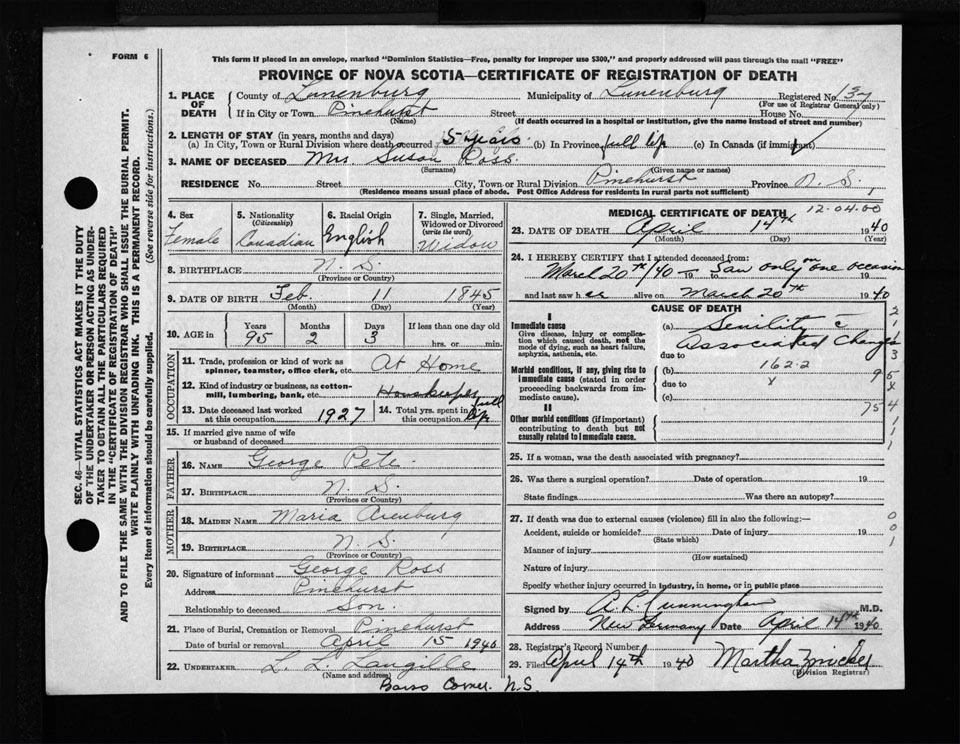 FORM 6
This form if placed in an envelope, marked "Dominion Statistics—Free, penalty for improper use $300," and properly addressed will pass through the mail "FREE"
PROVINCE OF NOVA SCOTIA—CERTIFICATE OF REGISTRATION OF DEATH
1. PLACE OF DEATH
County of Lunenburg Municipality of Lunenburg Registered No. 37
(For use of Registrar General only)
If in City or Town Pinehurst Street House No.
(Name) (If death occurred in a hospital or institution, give the name instead of street and number)
2. LENGTH OF STAY (in years, months and days)
(a) In City, Town or Rural Division where death occurred 5 Years (b) In Province full life (c) In Canada (if immigrant)
3. NAME OF DECEASED Mrs. Susan Ross.
(Surname) (Given name or names)
RESIDENCE No. Street City, Town or Rural Division Pinehurst Province N. S.
(Residence means usual place of abode. Post Office Address for residents in rural parts not sufficient)
4. Sex
Female
5. Nationality (Citizenship)
Canadian
6. Racial Origin
English
7. Single, Married, Widowed or Divorced (write the word)
Widow
8. BIRTHPLACE N. S.
(Province or Country)
9. DATE OF BIRTH Feb. 11 1845
(Month) (Day) (Year)
10. AGE in
Years Months Days If less than one day old
95 2 3 hrs. or min.
OCCUPATION
11. Trade, profession or kind of work as spinner, teamster, office clerk, etc. At Home
12. Kind of industry or business, as cotton-mill, lumbering, bank, etc. Housekeeper
13. Date deceased last worked at this occupation 1927
14. Total yrs. spent in this occupation full life
15. If married give name of wife or husband of deceased
FATHER
16. NAME George Pete
17. BIRTHPLACE N. S.
(Province or Country)
MOTHER
18. MAIDEN NAME Maria Arenburg
19. BIRTHPLACE N. S.
(Province or Country)
20. Signature of informant George Ross
Address Pinehurst
Relationship to deceased Son.
21. Place of Burial, Cremation or Removal Pinehurst
Date of burial or removal April 15 1940
22. UNDERTAKER L. L. Langille
(Name and address)
Barss Corner. N.S.
MEDICAL CERTIFICATE OF DEATH 12-04-00
23. DATE OF DEATH April 14th 1940
(Month) (Day) (Year)
24. I HEREBY CERTIFY that I attended deceased from:
March 20th/40 to Saw only on one occasion 19
and last saw her alive on March 20th 1940
CAUSE OF DEATH
I
Immediate cause
Give disease, injury or complication which caused death, not the mode of dying, such as heart failure, asphyxia, asthenia, etc.
(a) Senility c
Associated Changes
due to
Morbid conditions, if any, giving rise to immediate cause (stated in order proceeding backwards from immediate cause).
(b) 162.2
due to x
(c)
II
Other morbid conditions (if important) contributing to death but not causally related to immediate cause.
25. If a woman, was the death associated with pregnancy?
26. Was there a surgical operation? Date of operation 19
State findings Was there an autopsy?
27. If death was due to external causes (violence) fill in also the following:—
Accident, suicide or homicide? Date of injury 19
(State which)
Manner of injury
(How sustained)
Nature of injury
Specify whether injury occurred in industry, in home, or in public place
Signed by A. L. Cunningham M.D.
Address New Germany Date April 14th 1940
28. Registrar's Record Number
29. Filed April 14th 1940 Martha Zwicker
(Division Registrar)
SEC. 46—VITAL STATISTICS ACT MAKES IT THE DUTY
OF THE UNDERTAKER OR PERSON ACTING AS UNDER-
TAKER TO OBTAIN ALL THE PARTICULARS REQUIRED
IN THE "CERTIFICATE OF REGISTRATION OF DEATH"
AND TO FILE THE SAME WITH THE DIVISION REGISTRAR WHO SHALL ISSUE THE BURIAL PERMIT.
WRITE PLAINLY WITH UNFADING INK. THIS IS A PERMANENT RECORD.
Every item of information should be carefully supplied. (See reverse side for instructions.)